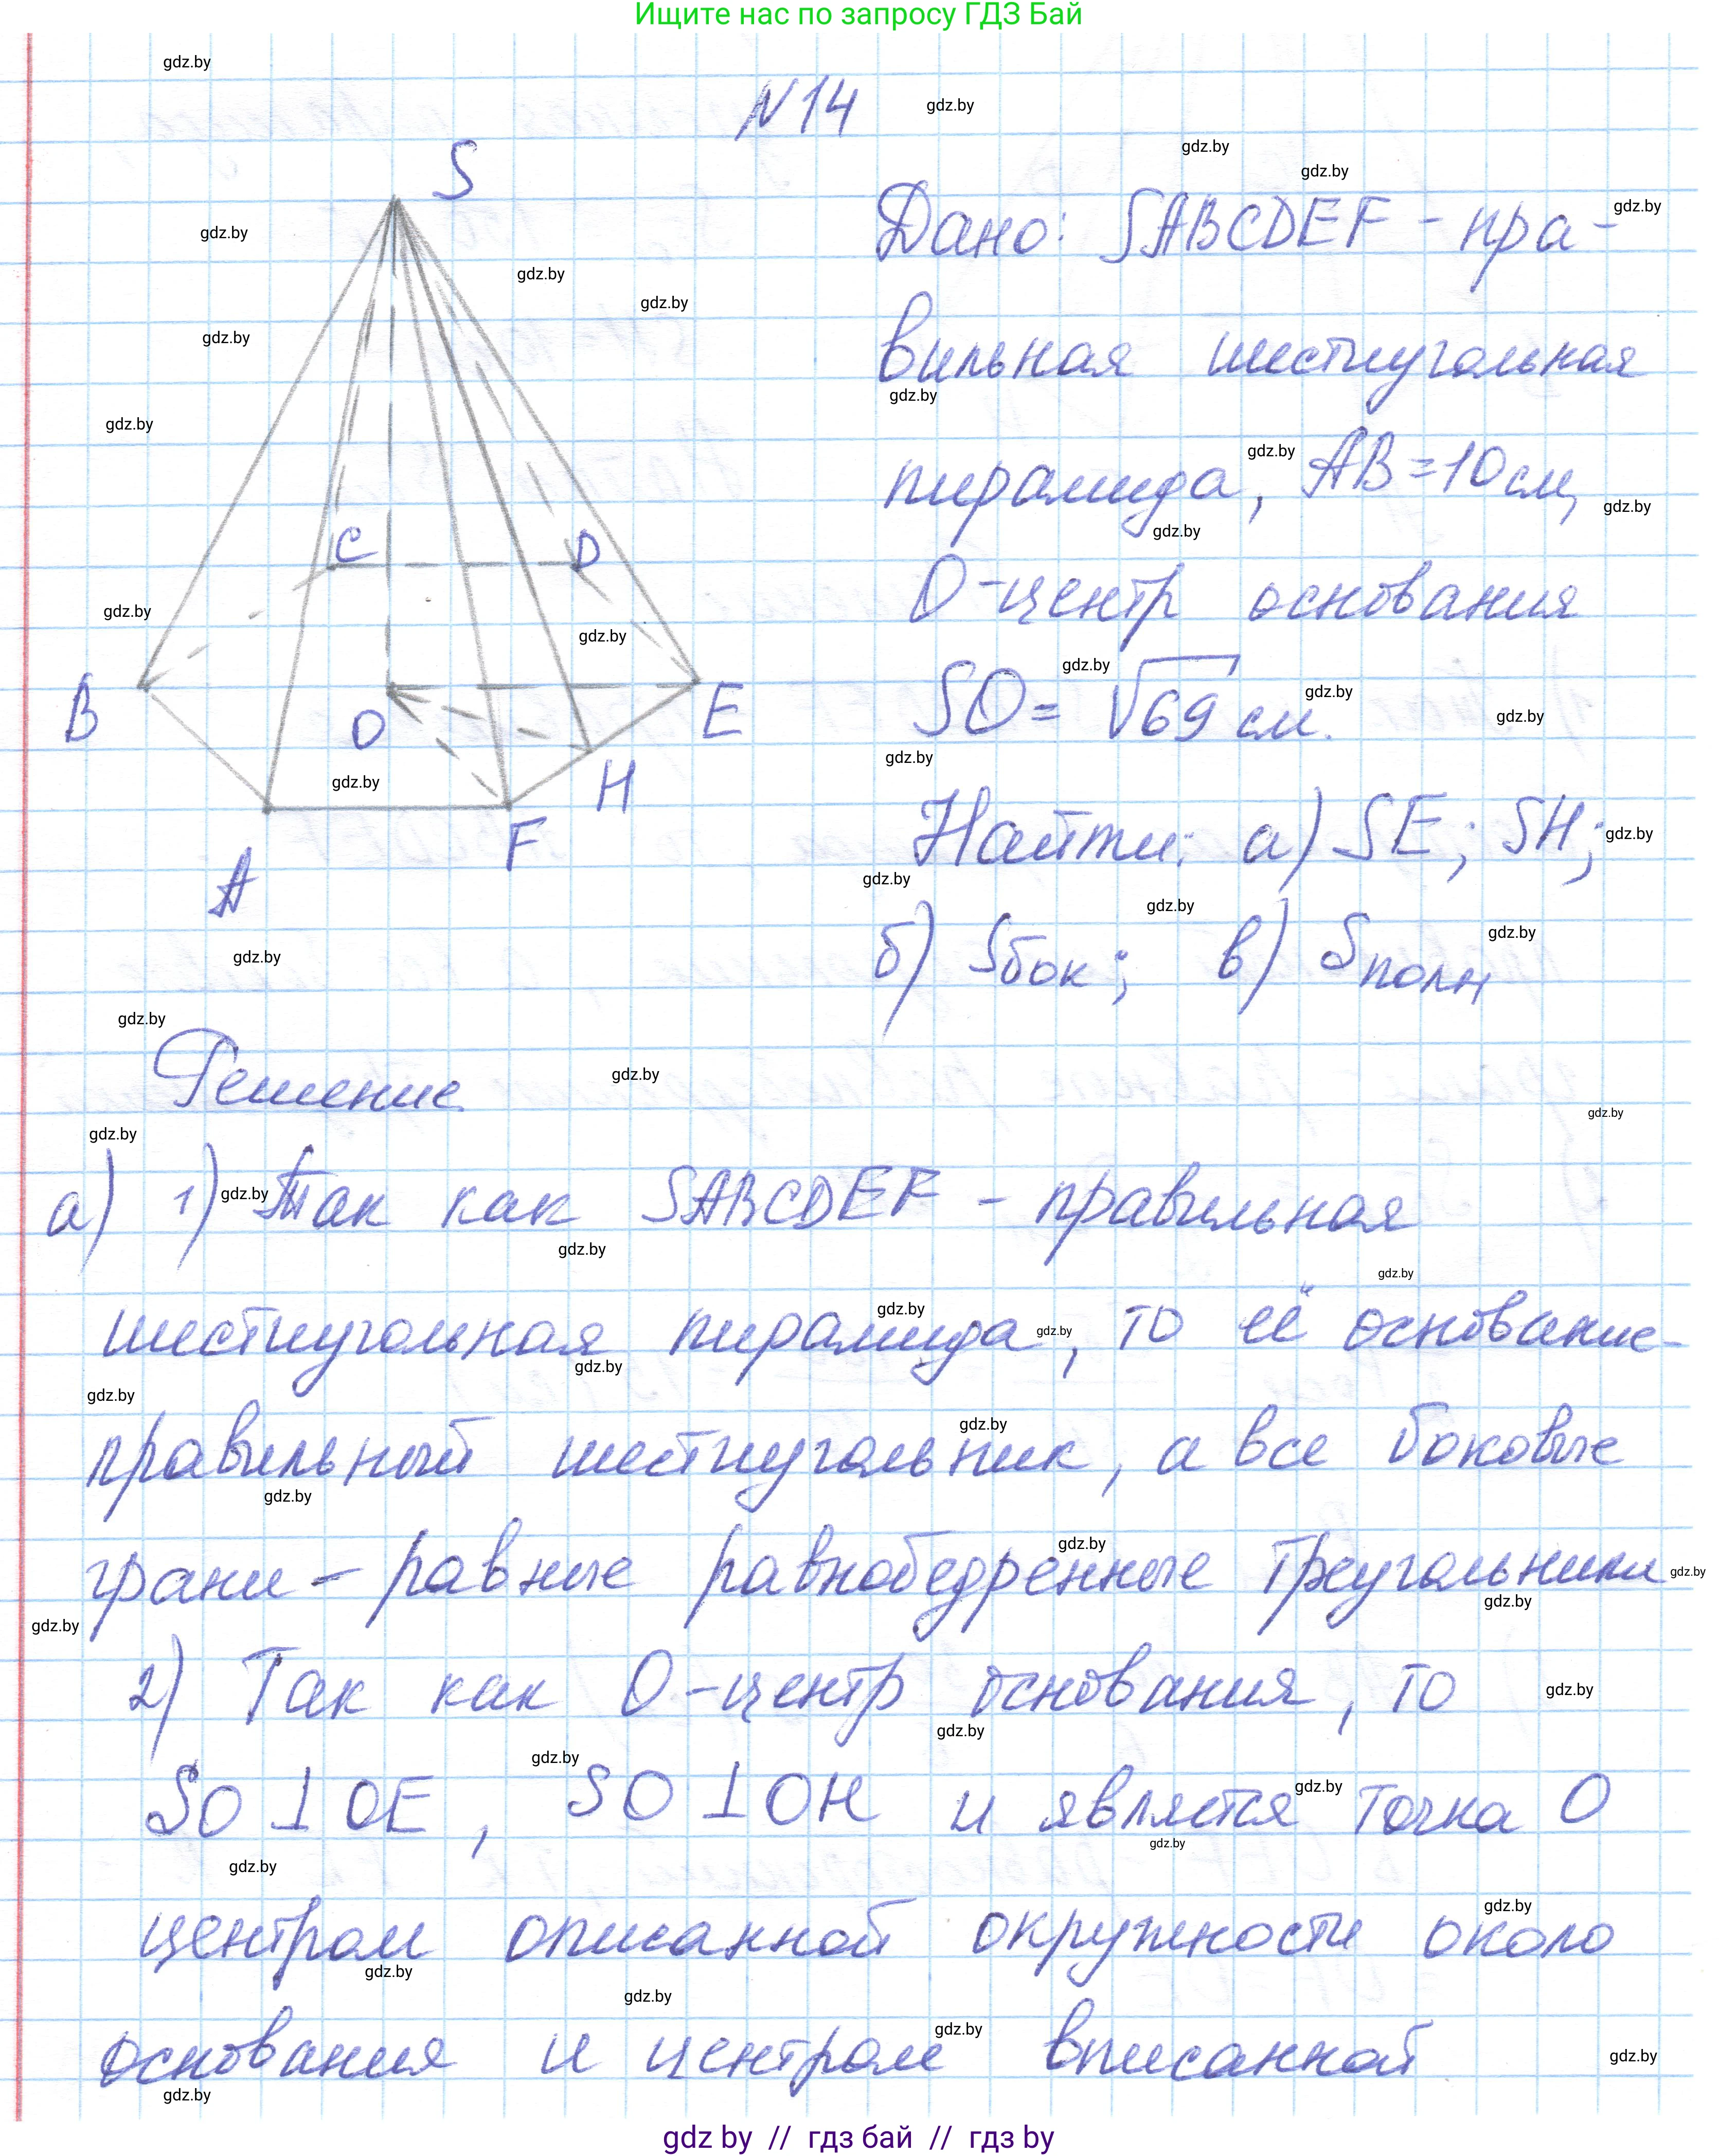 Ищите нас по запросу ГДЗ Бай
N 14
S
C
D
B
O
E
H
F
A
Дано: SABCDEF - пра-
вильная шестиугольная
пирамида, AB = 10 см,
O - центр основания
SO = √69 см.
Найти: а) SE; SH;
б) Sбок; в) Sполн
Решение
а) 1) Так как SABCDEF - правильная
шестиугольная пирамида, то её основание-
правильный шестиугольник, а все боковые
грани - равные равнобедренные треугольники
2) Так как O - центр основания, то
SO ⊥ OE, SO ⊥ OH и является точка O
центром описанной окружности около
основания и центром вписанной
gdz by // гдз бай // гдз by